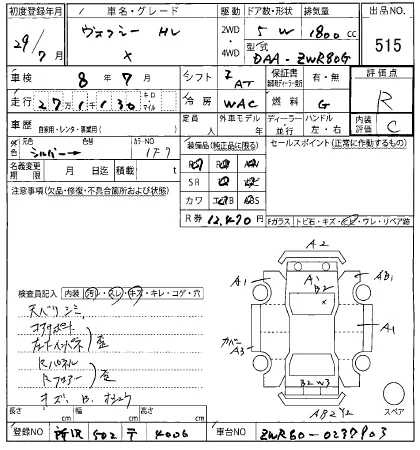 初度登録年月 車名・グレード 駆動 ドア数・形状 排気量 出品NO.
29/7月 ヴォクシー HV 2WD・4WD 5 W 1800cc 515
X 型式 DAA-ZWR80G
車検 8年7月 シフト AT 保証書 有・無 評価点
走行 キロ マイル 冷房 WAC 燃料 G R
車歴 自家用・レンタ・事業用( ) 定員 人 外車モデル 年 ディーラー・並行 ハンドル 左・右 内装評価 C
外色 元色 シルバー→ 色替 カラーNO 1F7 装備品(純正品に限る) セールスポイント(正常に作動するもの)
名義変更期限 月 日迄 積載 t
SR
注意事項(欠品・修復・不具合箇所および状態) カワ
R券 12,470円 Fガラス トビ石・キズ・ヒビ・ワレ・リペア跡
A2
A1 A1 B2 AB1
X
検査員記入 内装 汚レ・スレ・キズ・キレ・コゲ・穴
天バリシミ
コアサポート
左右インパネ 歪
カバー A3 A1
Rパネル
Rフロアー 歪
キズ、B、
B2 W3
AB2 Y2
スペア
長さ cm 幅 cm 高さ cm
登録NO 502 4006 車台NO ZWR80-0237903